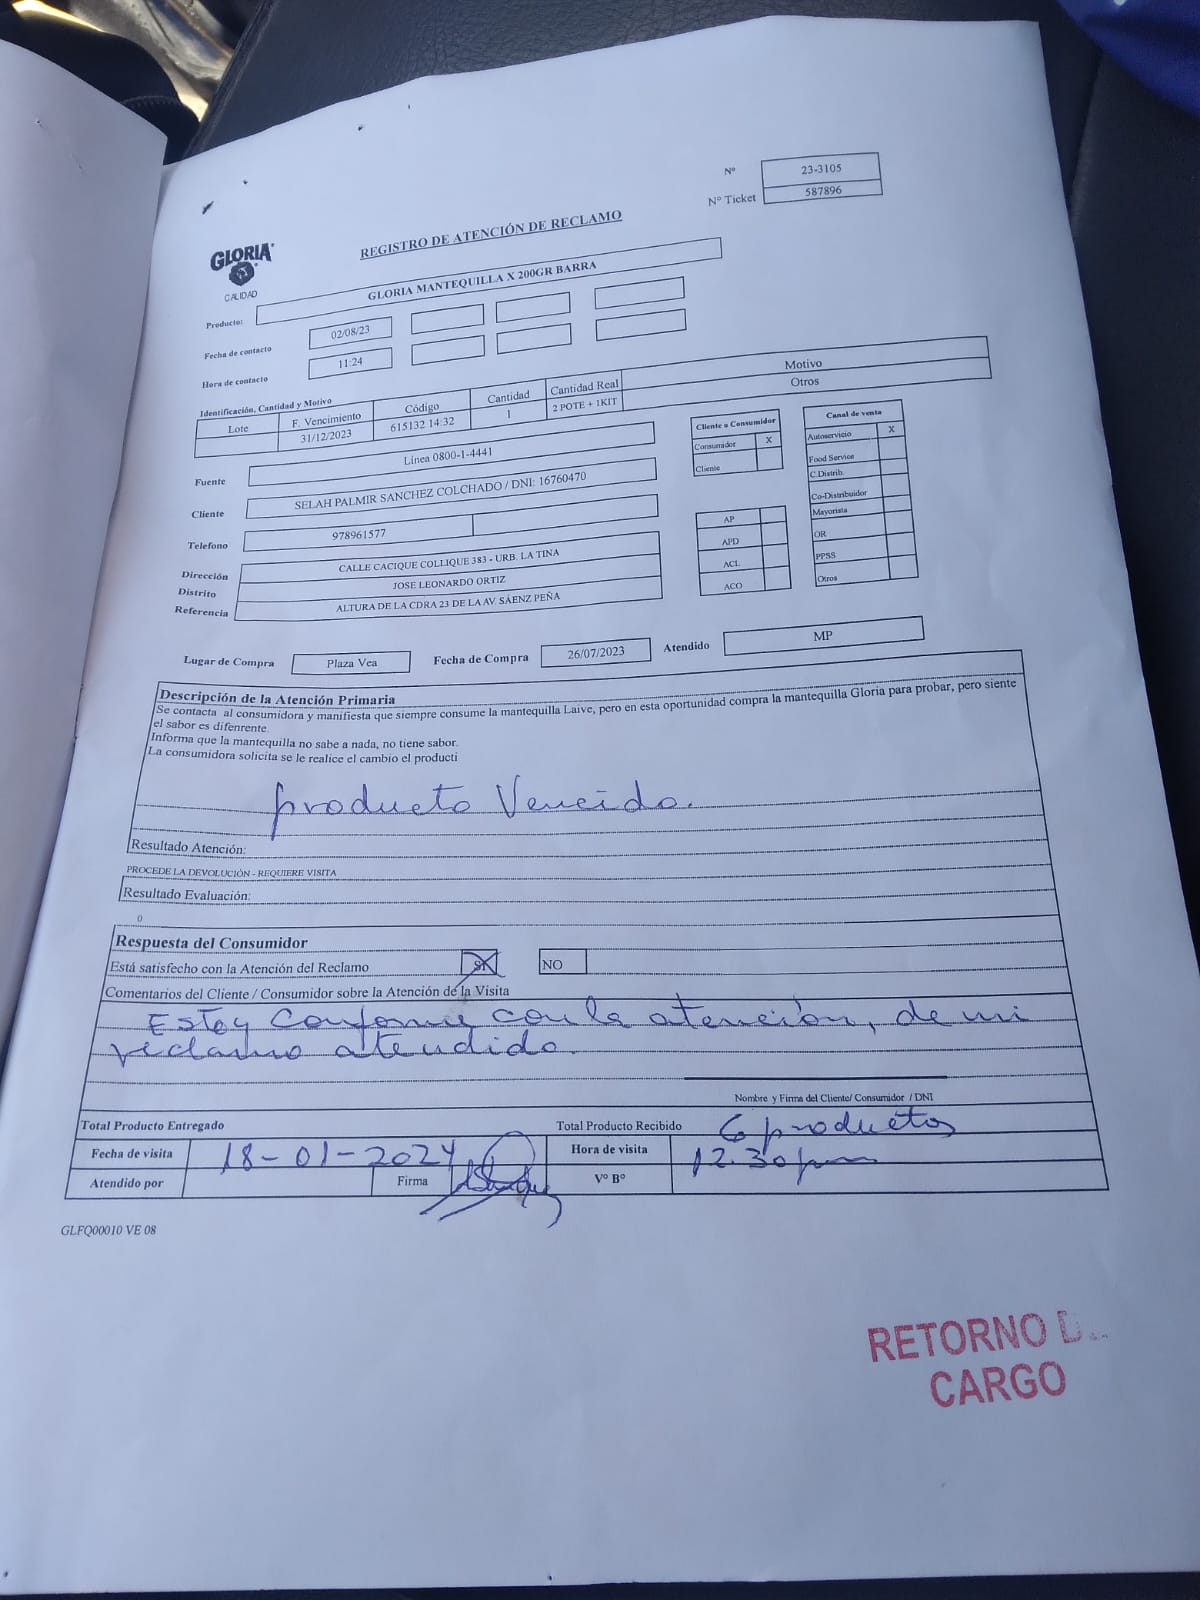 Nº 23-3105
Nº Ticket 587896
GLORIA
CALIDAD
REGISTRO DE ATENCIÓN DE RECLAMO
Producto: GLORIA MANTEQUILLA X 200GR BARRA
Fecha de contacto 02/08/23
Hora de contacto 11:24
Identificación, Cantidad y Motivo
Lote F. Vencimiento Código Cantidad Cantidad Real Motivo
31/12/2023 615132 14:32 1 2 POTE + 1KIT Otros
Fuente Línea 0800-1-4441
Cliente SELAH PALMIR SANCHEZ COLCHADO / DNI: 16760470
Telefono 978961577
Dirección CALLE CACIQUE COLLIQUE 383 - URB. LA TINA
Distrito JOSE LEONARDO ORTIZ
Referencia ALTURA DE LA CDRA 23 DE LA AV. SÁENZ PEÑA
Cliente o Consumidor
Consumidor X
Cliente
AP
APD
ACL
ACO
Canal de venta
Autoservicio X
Food Service
C.Distrib.
Co-Distribuidor
Mayorista
OR
PPSS
Otros
Lugar de Compra Plaza Vea Fecha de Compra 26/07/2023 Atendido MP
Descripción de la Atención Primaria
Se contacta al consumidora y manifiesta que siempre consume la mantequilla Laive, pero en esta oportunidad compra la mantequilla Gloria para probar, pero siente
el sabor es difenrente.
Informa que la mantequilla no sabe a nada, no tiene sabor.
La consumidora solicita se le realice el cambio el producti
producto Vencido.
Resultado Atención:
PROCEDE LA DEVOLUCIÓN - REQUIERE VISITA
Resultado Evaluación:
0
Respuesta del Consumidor
Está satisfecho con la Atención del Reclamo SI NO
Comentarios del Cliente / Consumidor sobre la Atención de la Visita
Estoy Conforme con la atención, de mi
reclamo atendido.
Nombre y Firma del Cliente/ Consumidor / DNI
Total Producto Entregado Total Producto Recibido 6 productos
Fecha de visita 18-01-2024 Hora de visita 12.30 pm
Atendido por Firma Vº Bº
GLFQ00010 VE 08
RETORNO
CARGO